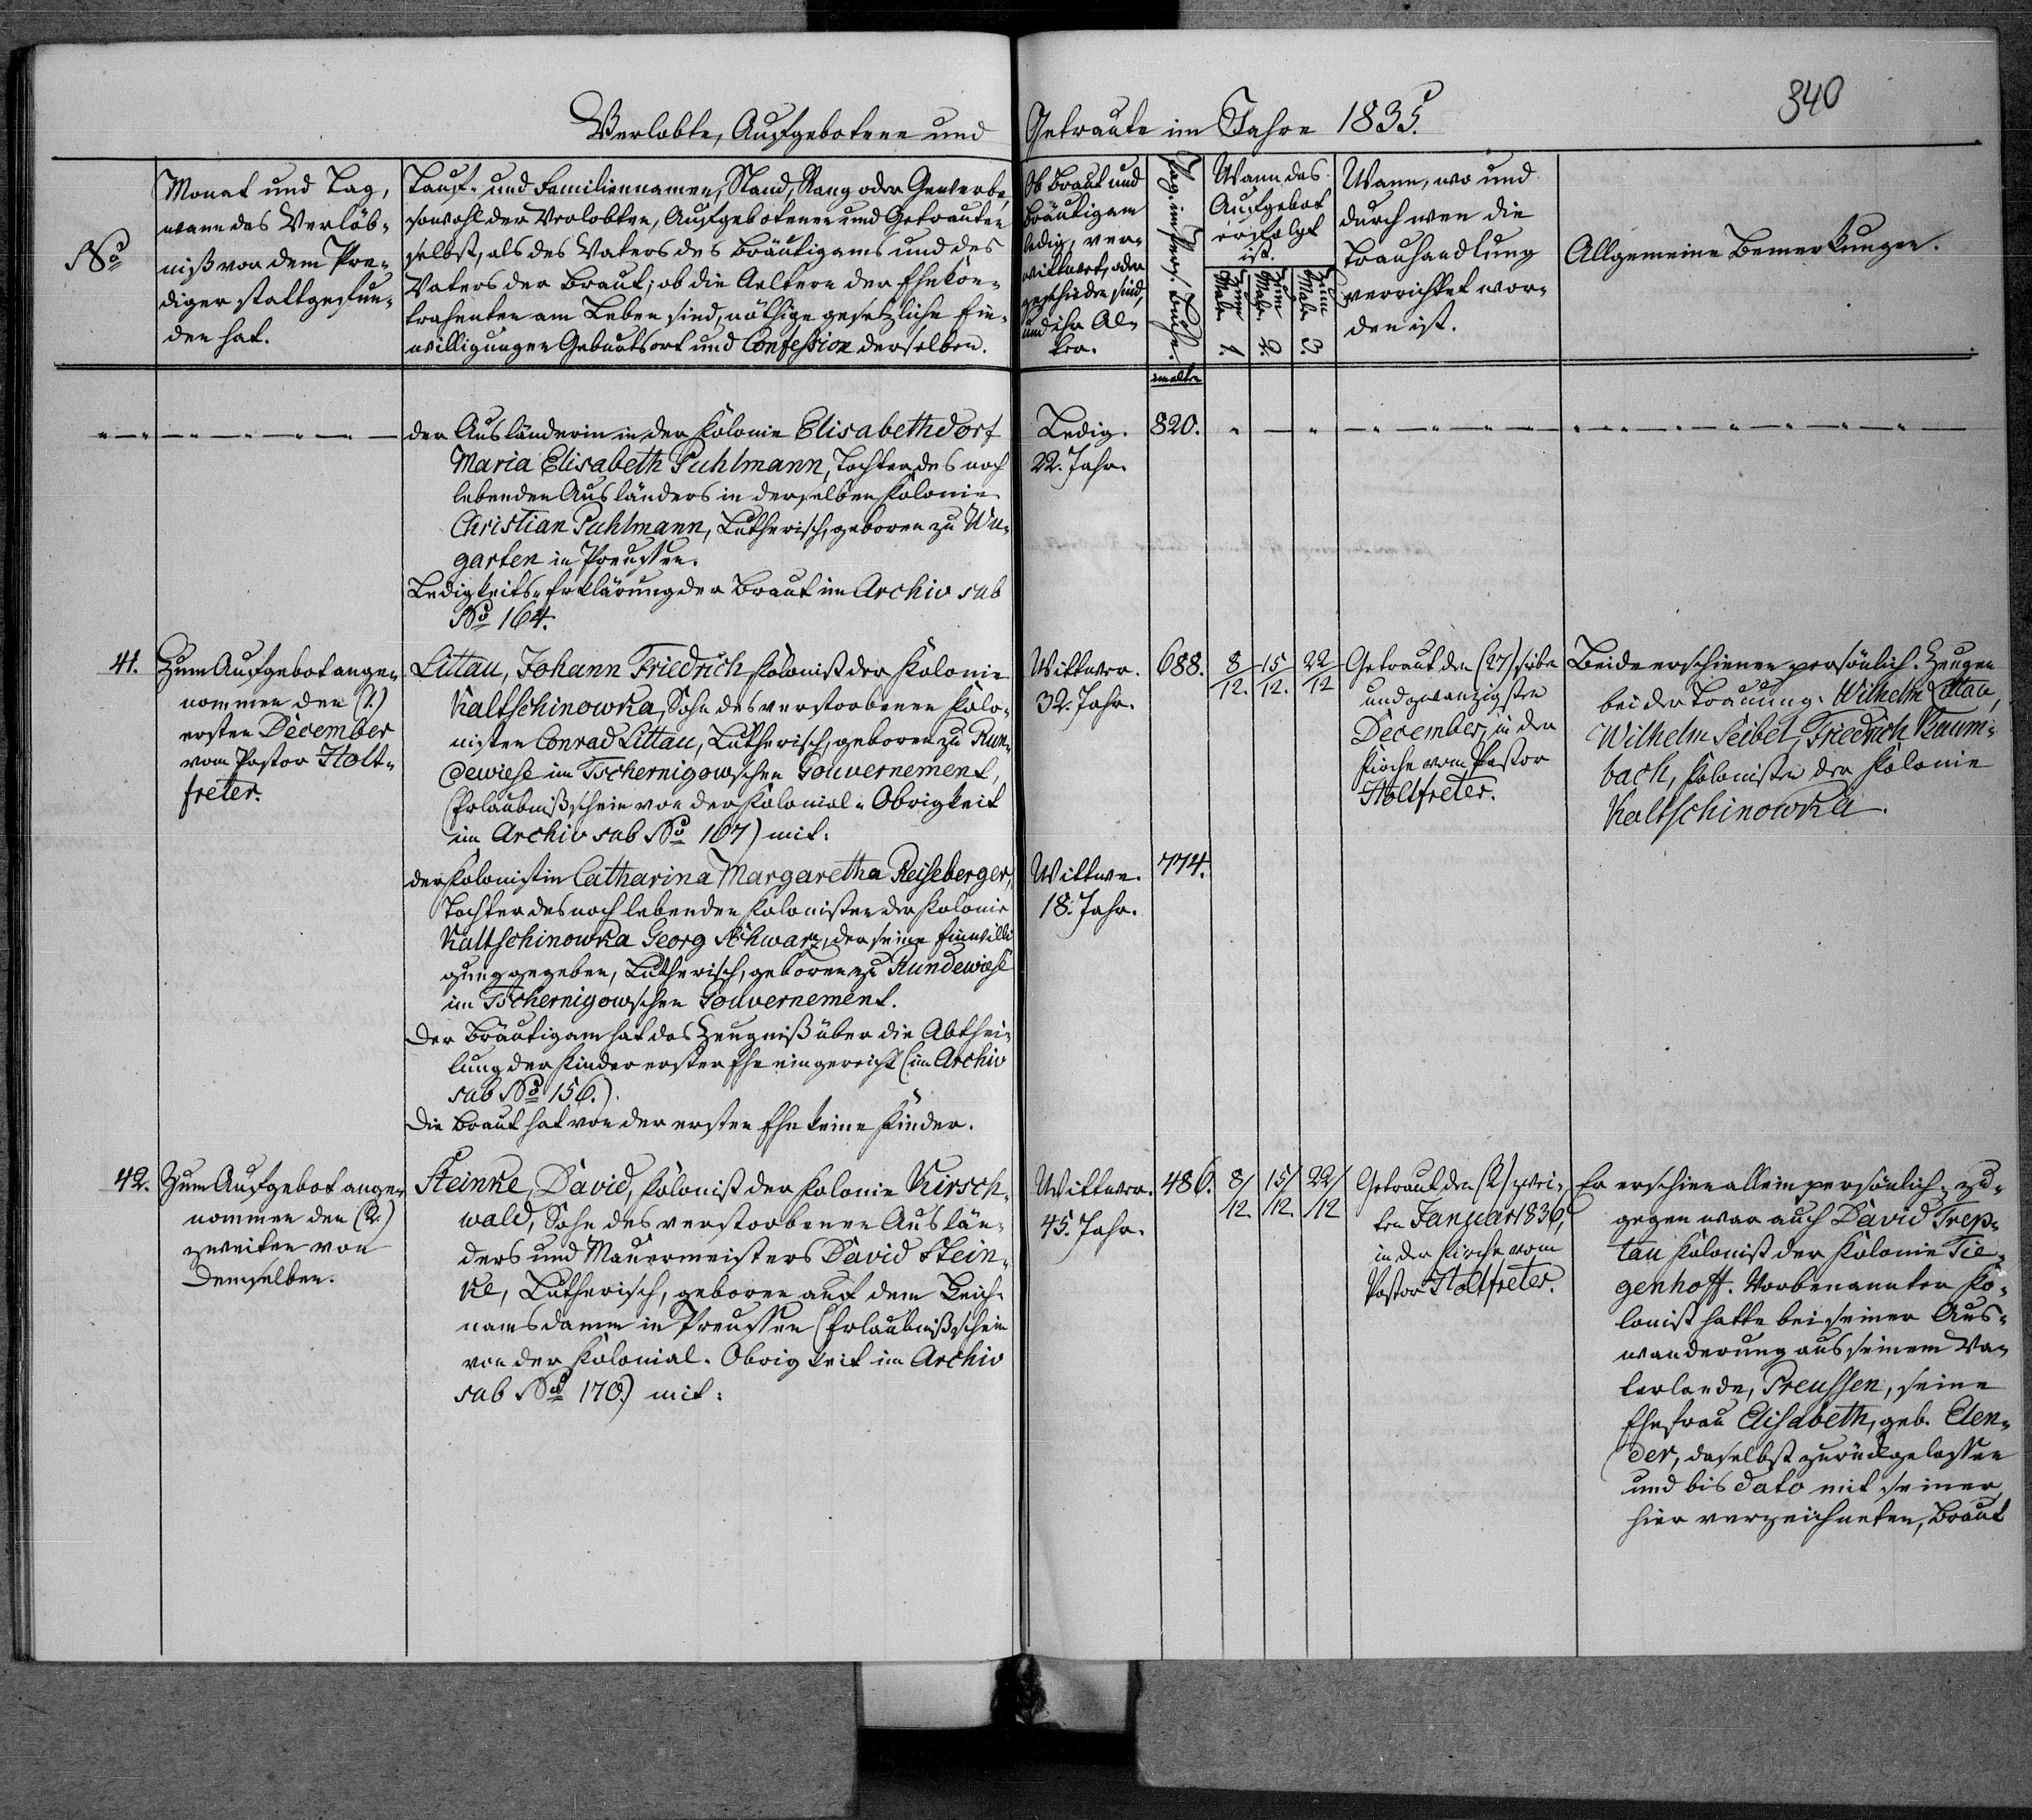 340
Verlobte, Aufgebotene und Getraute im Jahre 1835.
No
Monat und Tag,
wann das Verlöb-
niß vor dem Pre-
diger stattgefun-
den hat.
Tauf- und Familiennamen, Stand, Rang oder Gewerbe,
sowohl der Verlobten, Aufgebotenen und Getrauten
selbst, als des Vaters des Bräutigams und des
Vaters der Braut; ob die Aeltern der Ehekon-
trahenten am Leben sind, nöthige gesetzliche Ein-
willigungen Geburtsort und Confession derselben.
Ob Braut und
Bräutigam
ledig, ver-
wittwet, oder
geschieden sind,
und ihr Al-
ter.
Pag. im Pers. Buche.
Wann das
Aufgebot
erfolgt
ist.
Zum 1. Male
Zum 2. Male
Zum 3. Male
Wann, wo und
durch wen die
Trauhandlung
verrichtet wor-
den ist.
Allgemeine Bemerkungen.
im alten
der Ausländerin in der Kolonie Elisabethdorf
Maria Elisabeth Puhlmann, Tochter des noch
lebenden Ausländers in derselben Kolonie
Christian Puhlmann, Lutherisch, geboren zu Wu-
garten in Preussen.
Ledigkeits-Erklärung der Braut im Archiv sub
No 164.
Ledig.
22. Jahr.
820.
41.
Zum Aufgebot ange-
nommen den (1.)
ersten December
vom Pastor Holt-
freter.
Littau, Johann Friedrich Kolonist der Kolonie
Kaltschinowka, Sohn des verstorbenen Kolo-
nisten Conrad Littau, Lutherisch, geboren zu Run-
dewiese im Tschernigowschen Gouvernement,
(Erlaubnißschein von der Kolonial-Obrigkeit
im Archiv sub No 167) mit:
der Kolonistin Catharina Margaretha Reiseberger,
Tochter des noch lebenden Kolonisten der Kolonie
Kaltschinowka Georg Schwarz, der seine Einwilli
gung gegeben, Lutherisch, geboren zu Rundewiese
im Tschernigowschen Gouvernement.
Der Bräutigam hat das Zeugniß über die Abthei-
lung der Kinder erster Ehe eingereicht (im Archiv
sub No 156.).
Die Braut hat von der ersten Ehe keine Kinder.
Wittwer.
32. Jahr.
688.
8/12. 15/12. 22/12
Wittwe.
18. Jahr.
774.
Getraut den (27) sieben
und zwanzigsten
December, in der
Kirche vom Pastor
Holtfreter.
Beide erschienen persönlich. Zeugen
bei der Trauung: Wilhelm Littau,
Wilhelm Seibel, Friedrich Baum-
bach, Kolonisten der Kolonie
Kaltschinowka.
42.
Zum Aufgebot ange-
nommen den (2.)
zweiten von
demselben.
Steinke, David, Kolonist der Kolonie Kirsch-
wald, Sohn des verstorbenen Auslän-
ders und Mauermeisters David Stein-
ke, Lutherisch, geboren auf dem Leich-
namsdamm in Preussen (Erlaubnißschein
von der Kolonial-Obrigkeit im Archiv
sub No 170.) mit:
Wittwer.
45. Jahr.
486.
8/12. 15/12. 22/12
Getraut den (2) zwei-
ten Januar 1836,
in der Kirche vom
Pastor Holtfreter.
Er erschien allein persönlich, zu-
gegen war auch David Trep-
tau Kolonist der Kolonie Tie-
genhoff. Vorbenannter Ko-
lonist hatte bei seiner Aus-
wanderung aus seinem Va-
terlande, Preussen, seine
Ehefrau Elisabeth, geb. Elen-
der, daselbst zurückgelassen
und bis dato mit seiner
hier verzeichneten, Braut